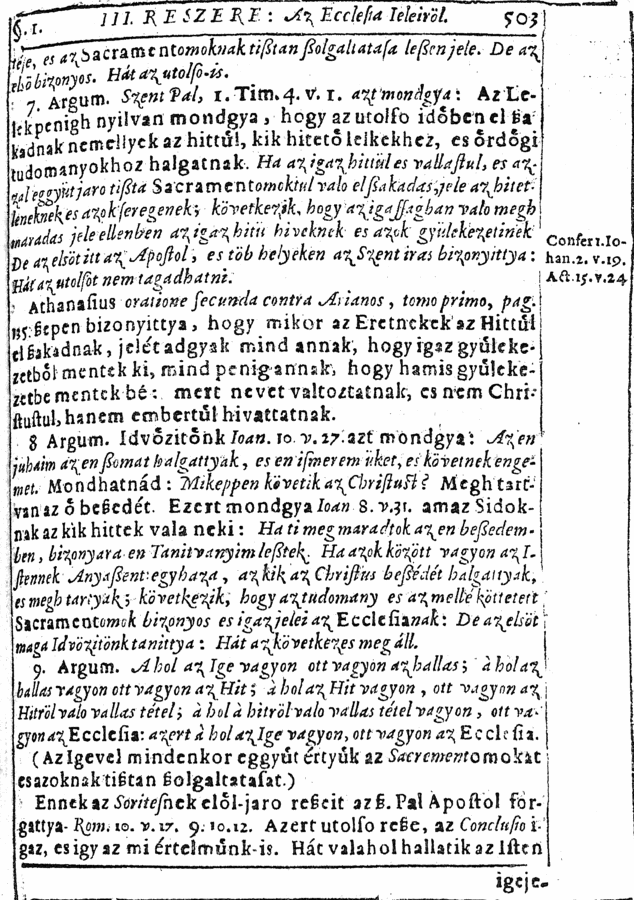 §. 1. III. RESZERE: Az Ecclesia Ieleiröl. 503
téje, es az Sacramentomoknak tißtan ßolgaltatasa leßen jele. De az
elsö bizonyos. Hát az utolso-is.
7. Argum. Szent Pal, 1. Tim. 4. v. 1. azt mondgya: Az Le-
lekpenigh nyilvan mondgya, hogy az utolso idöben el ßa-
kadnak nemellyek az hittül, kik hitetö lelkekhez, es ördögi
tudomanyokhoz halgatnak. Ha az igaz hittül es vallastul, es az-
zal eggyüt jaro tißta Sacramentomoktul valo elßakadas, jele az hitet-
leneknek es azok seregenek; következik, hogy az igassagban valo megh
maradas jele ellenben az igaz hitü hiveknek es azok gyülekezetinek
De az elsöt itt az Apostol, es töb helyeken az Szent iras bizonyittya:
Hát az utolsot nem tagadhatni.
Confer 1. Io-
han. 2. v. 19.
Act. 15. v. 24
Athanasius oratione secunda contra Arianos, tomo primo, pag.
ßepen bizonyittya, hogy mikor az Eretnekek az Hittül
el ßakadnak, jelét adgyak mind annak, hogy igaz gyüleke-
zetböl mentek ki, mind penig annak, hogy hamis gyüleke-
zetbe mentek bé: mert nevet valtoztatnak, es nem Chri-
stustul, hanem embertül hivattatnak.
8 Argum. Idvözitönk Ioan. 10. v. 27. azt mondgya: Az en
juhaim az en ßomat halgattyak, es en ismerem üket, es követnek enge-
met. Mondhatnád: Mikeppen követik az Christust? Megh tart-
van az ö beßedét. Ezert mondgya Ioan 8. v. 31. amaz Sidok-
nak az kik hittek vala neki: Ha ti meg maradtok az en beßedem-
ben, bizonyara en Tanitvanyim leßtek. Ha azok között vagyon az I-
stennek Anyaßent egyhaza, az kik az Christus beßédét halgattyak,
es megh tartyak; következik, hogy az tudomany es az mellé köttetett
Sacramentomok bizonyos es igaz jelei az Ecclesianak: De az elsöt
maga Idvözitönk tanittya: Hát az következes meg áll.
9. Argum. A hol az Ige vagyon ott vagyon az hallas; à hol az
hallas vagyon ott vagyon az Hit; à hol az Hit vagyon, ott vagyon az
Hitröl valo vallas tétel; à hol à hitröl valo vallas tétel vagyon, ott va-
gyon az Ecclesia: azert à hol az Ige vagyon, ott vagyon az Ecclesia.
(Az Igevel mindenkor eggyüt értyük az Sacramentomokat
es azoknak tißtan ßolgaltatasat.)
Ennek az Soritesnek elöl-jaro reßeit az ß. Pal Apostol for-
gattya. Rom. 10. v. 17. 9. 10. 12. Azert utolso reße, az Conclusio i-
gaz, es igy az mi értelmünk-is. Hát valahol hallatik az Isten
igeje-